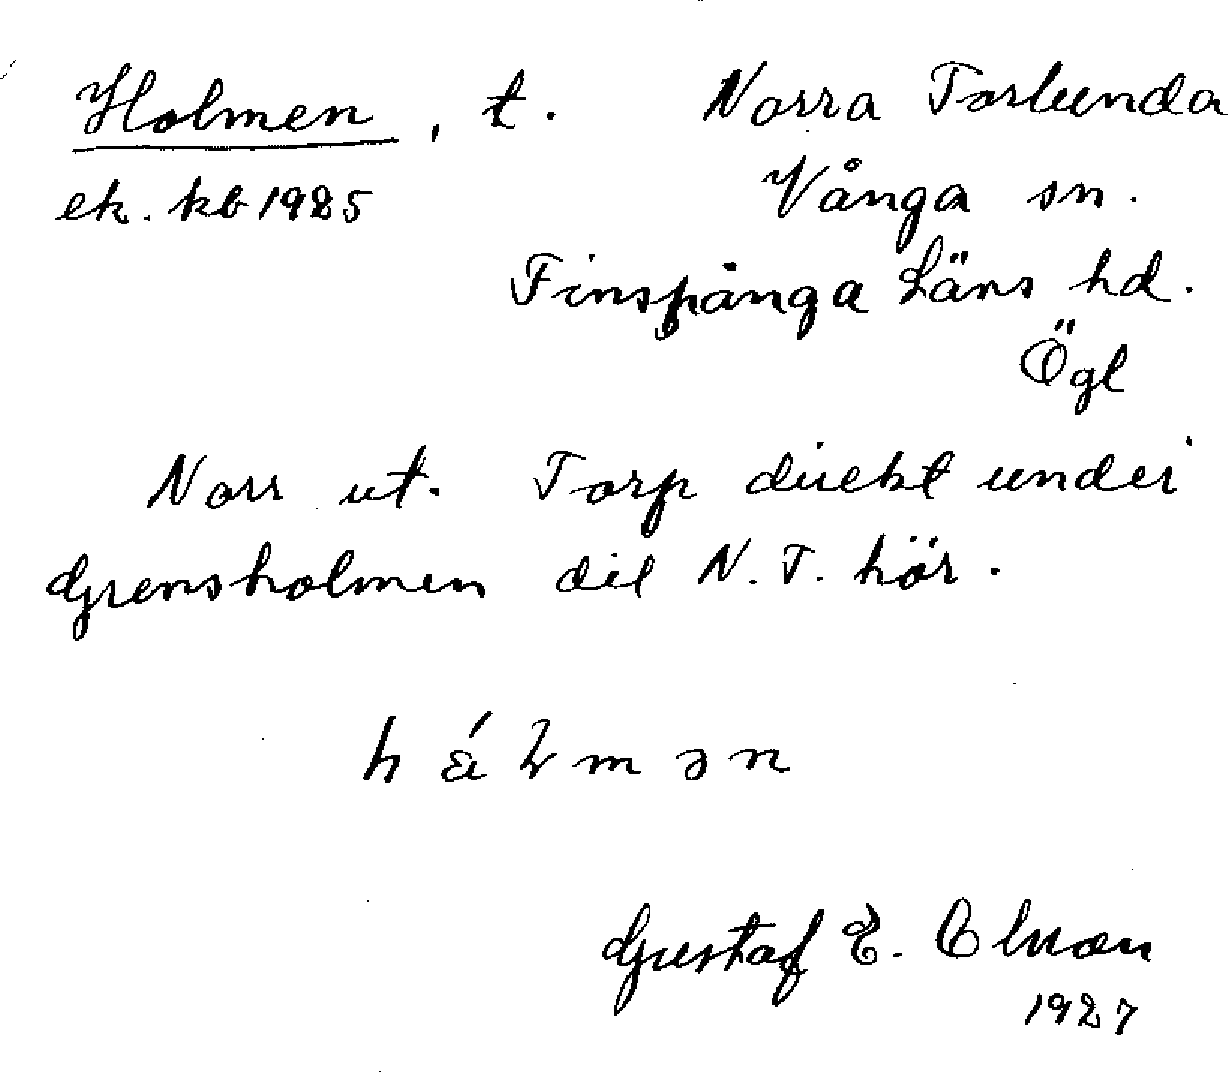 Holmen, t. Norra Torlunda
ek. kb 1925 Vånga sn.
Finspånga Läns hd.
Ögl
Norr ut. Torp direkt under
Grensholmen dil N. T. hör.
Gustaf E.
1927